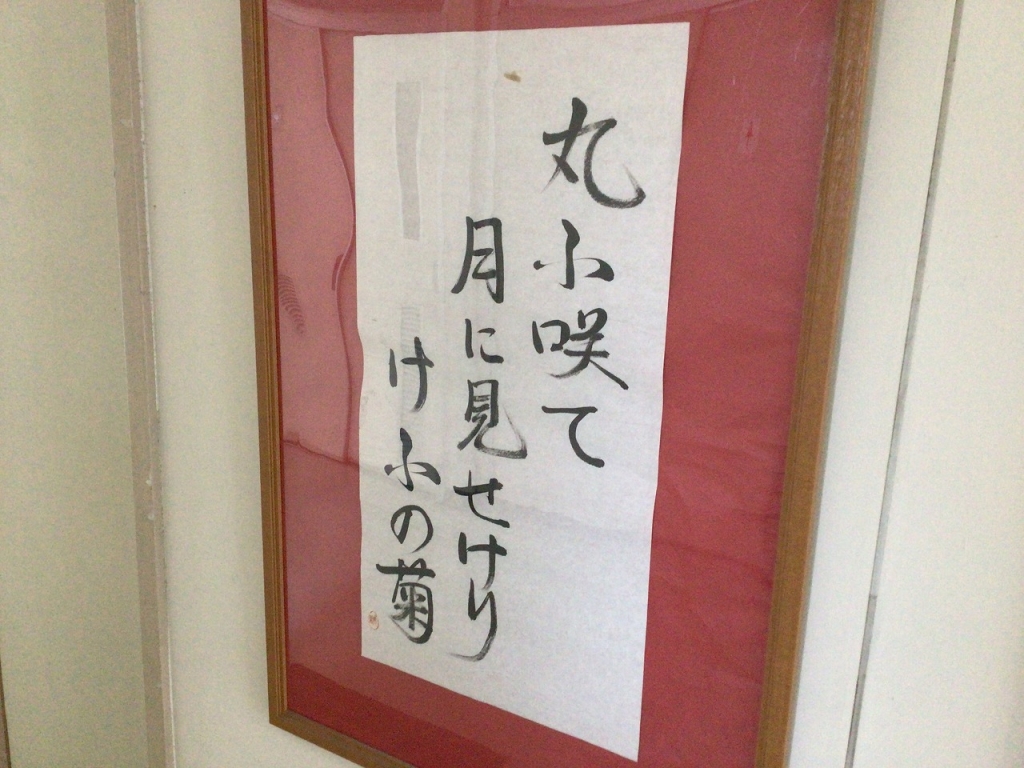 丸ふ咲て
月に見せけり
けふの菊